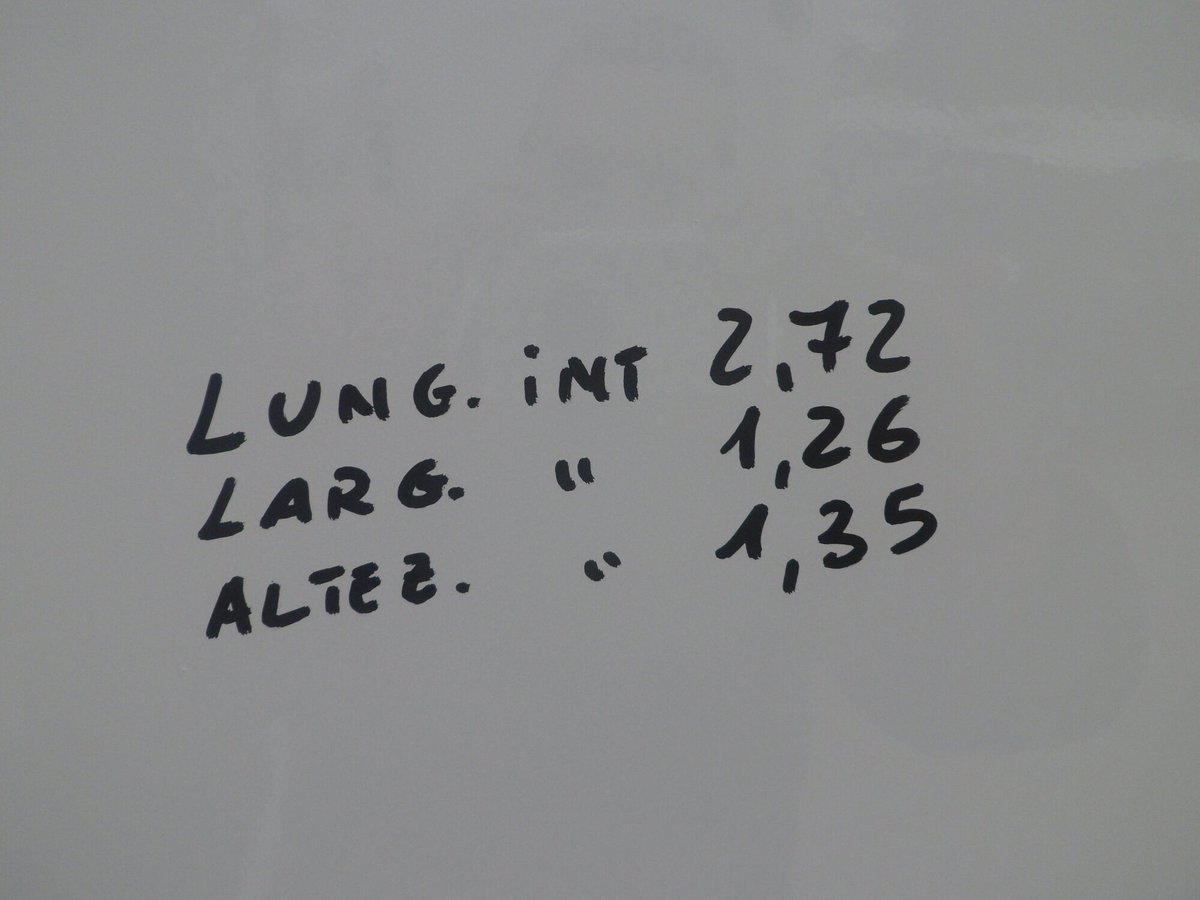 LUNG. iNT 2,72
LARG. " 1,26
ALTEZ. " 1,35